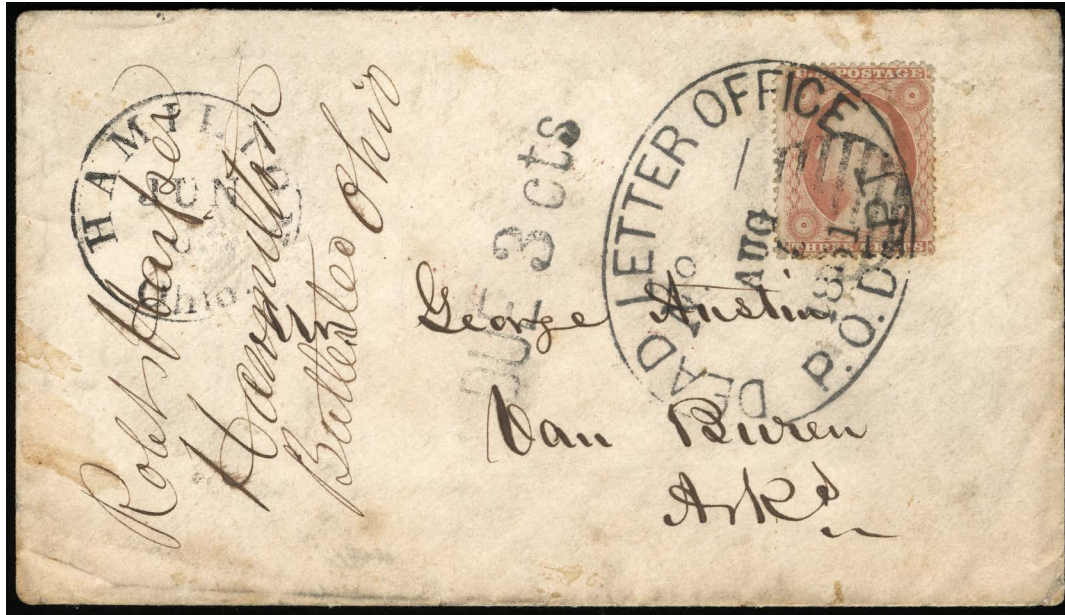 HAMILTON
JUN
Ohio
Robt Harper
Hamilton
Butler Co Ohio
DUE 3 cts
DEAD LETTER OFFICE
AUG
P.O. DPT.
U.S. POSTAGE
THREE CENTS
Mr
George Austin
Van Buren
Arks